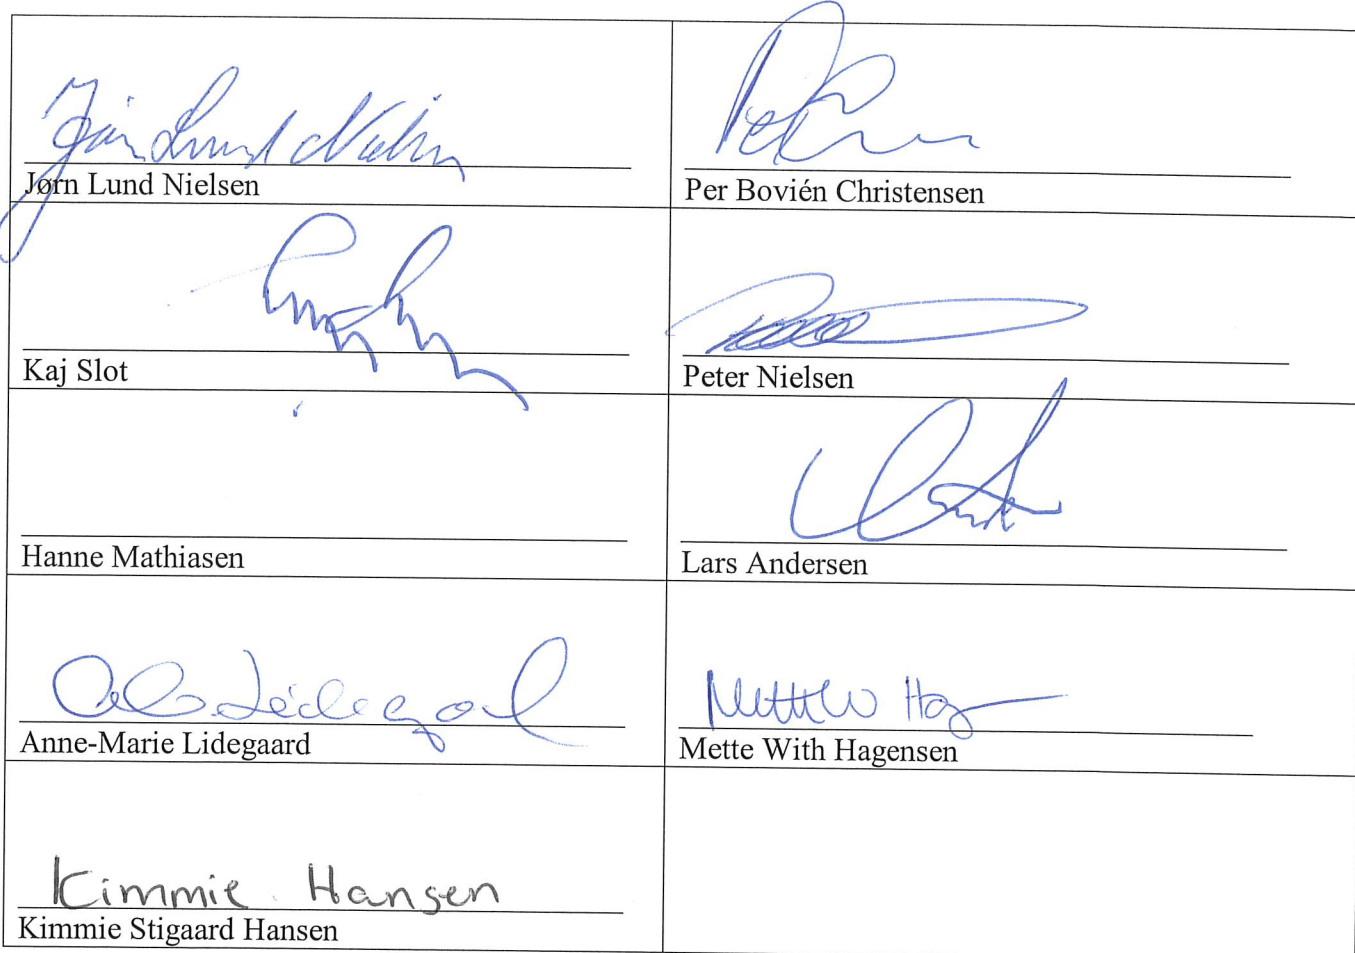 Jørn Lund Nielsen
Jørn Lund Nielsen
Per Bovién Christensen
Kaj Slot
Peter Nielsen
Hanne Mathiasen
Lars Andersen
Lidegaard
Anne-Marie Lidegaard
Mette W Hag
Mette With Hagensen
Kimmie Hansen
Kimmie Stigaard Hansen